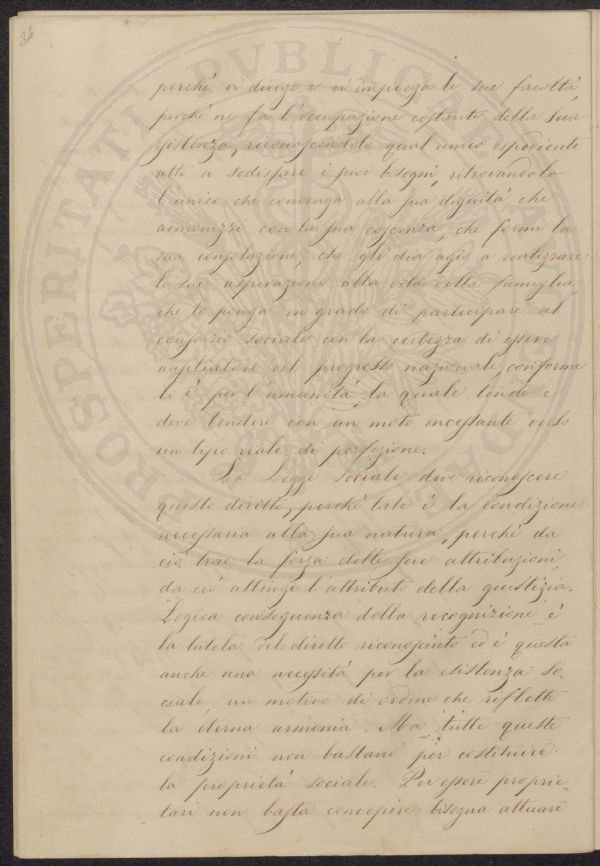 34
perché vi dirige e vi impiega le sue facoltà,
perché ne fa l'occupazione costante della sua
esistenza, riconoscendolo qual unico espediente
atto a sodisfare i suoi bisogni, ritrovandolo
l'unico che convenga alla sua dignità, che
armonizzi con la sua coscienza, che formi la
sua consolazione, che gli dia agio a realizzare
le sue aspirazioni alla vita della famiglia,
che lo ponga in grado di participare al
consorzio sociale con la certezza di essere
ausiliatore del progresso nazionale conforme
lo è per l'umanità, la quale tende e
deve tendere con un moto incessante verso
un tipo reale di perfezione.
La Legge sociale deve riconoscere
questo diritto, perché tale è la condizione
necessaria alla sua natura, perché da
ciò trae la forza delle sue attribuzioni,
da ciò attinge l'attributo della giustizia.
Logica conseguenza della recognizione è
la tutela del diritto riconosciuto ed è questa
anche una necessità per la esistenza so-
ciale, un motivo di ordine che riflette
la eterna armonia. Ma tutte queste
condizioni non bastano per costituire
la proprietà sociale. Per essere proprie-
tari non basta concepire: bisogna attuare
PROSPERITATI PVBLICAE